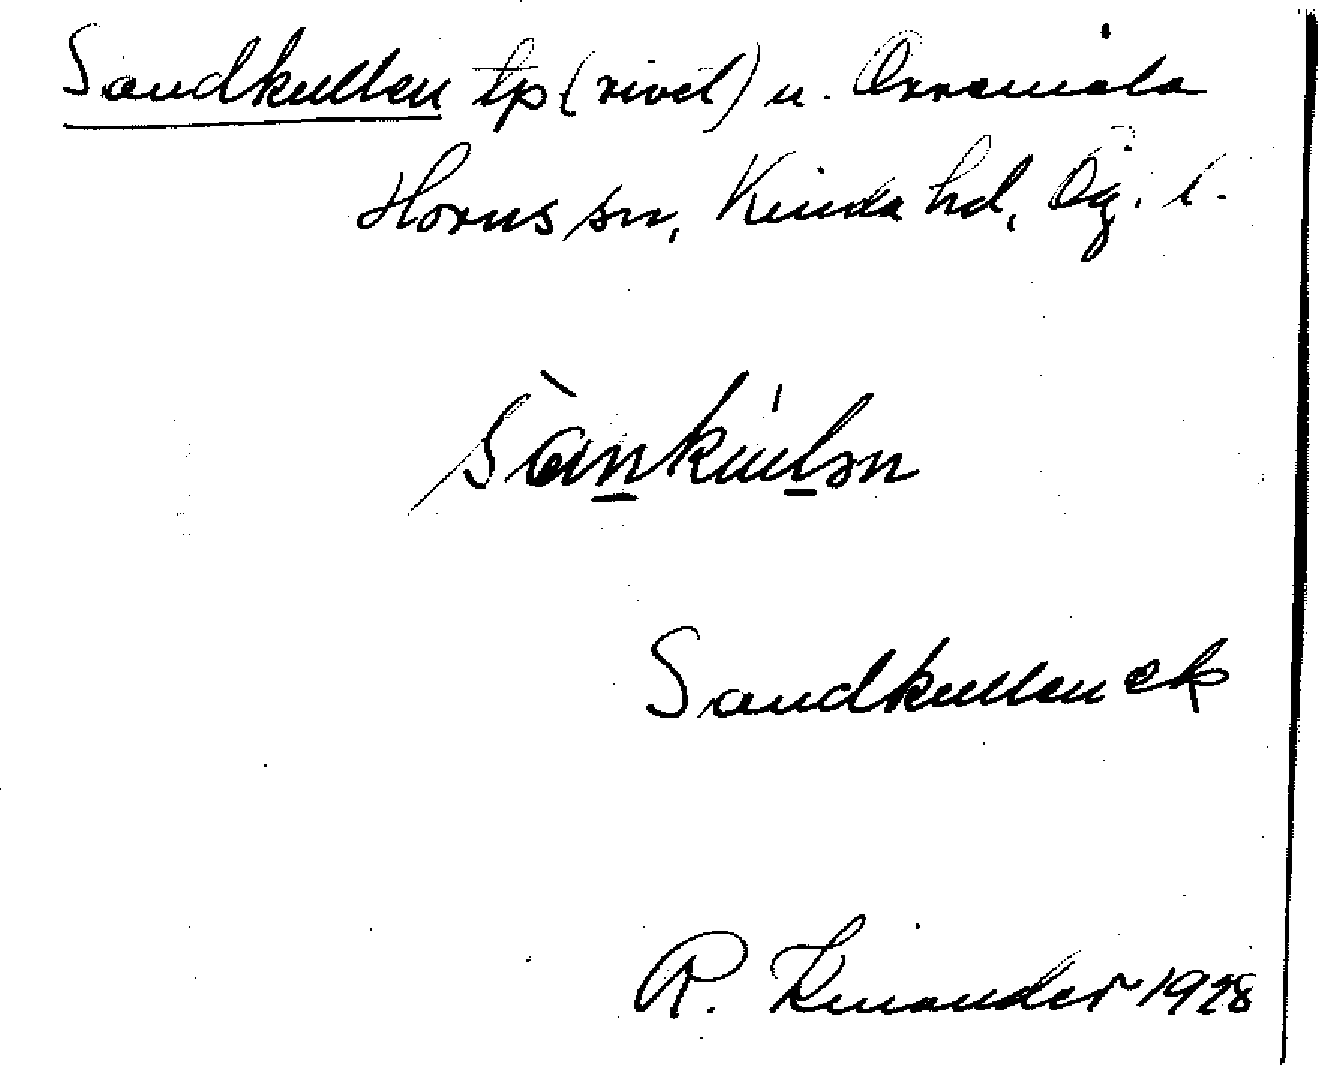 Sandkullen tp (rivet) u. Orramåla
Horns sn, Kinda hd, Ög. l.
sànkúlən
Sandkullen ek
R. Kinander 1928